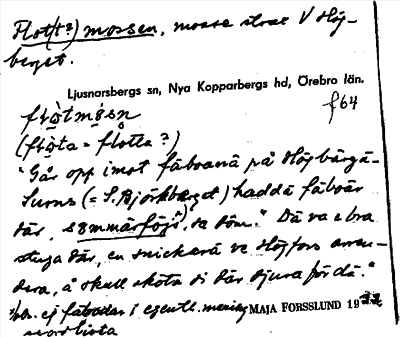 Flot(t?)mossen, mosse strax V Hög-
berget.
Ljusnarsbergs sn, Nya Kopparbergs hd, Örebro län.
flo̠tmo̠sn f64
(flo̠ta = flotta?)
"Går opp imot fäboanä på Högbärgä.
Surns (= S. Björkberget) haddä fäboär
där, sommärföjs, sa döm." Dä va e bra
stuga där, en snickarä ve Högfors arren-
dera, å skull sköta di där djura för dä."
ej fäbodar i egentl. mening MAJA FORSSLUND 1932